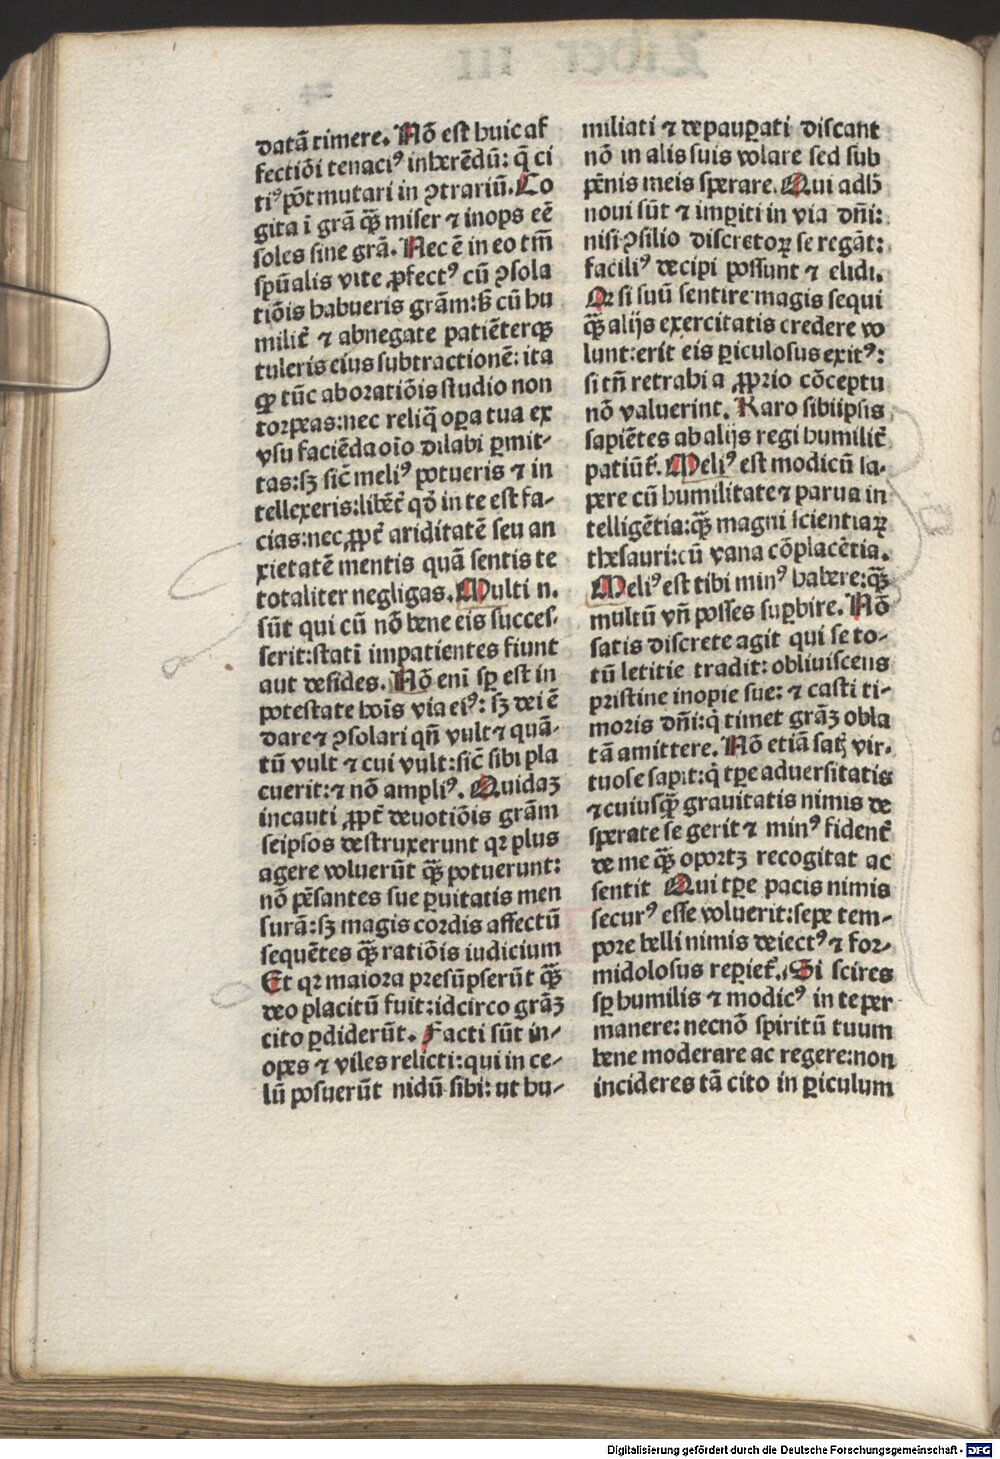 datā timere. Nō est huic af
fectiōi tenaciꝰ inherēdū: q̄ ci
tiꝰ pōt mutari in ꝯtrariū. Co
gita ī grā qꝫ̄ miser ⁊ inops eē
soles sine grā. Nec ē in eo tm̄
spūalis vite ꝓfectꝰ cū ꝯsola
tiōis habueris grām: sꝫ cū hu
milit̄ ⁊ abnegate patiēterqꝫ
tuleris eius subtractionē: ita
ꝙ tūc aboratiōis studio non
torpeas: nec reliq̄ oꝑa tua ex
vsu faciēda oīo dilabi ꝑmit-
tas: sꝫ sic̄ meliꝰ potueris ⁊ in
tellexeris: libēt̄ qđ in te est fa-
cias: nec ꝓpt̄ ariditatē seu an
xietatē mentis quā sentis te
totaliter negligas. Multi n.
sūt qui cū nō bene eis succes-
serit: statī impatientes fiunt
aut desides. Nō enī sꝑ est in
potestate hoīs via eiꝰ: sꝫ dei ē
dare ⁊ ꝯsolari qn̄ vult ⁊ quā-
tū vult ⁊ cui vult: sic̄ sibi pla
cuerit: ⁊ nō ampliꝰ. Quidaꝫ
incauti ꝓpt̄ deuotiōis grām
seipsos destruxerunt qꝛ plus
agere voluerūt qꝫ̄ potuerunt:
nō pēsantes sue ꝑuitatis men
surā: sꝫ magis cordis affectū
sequētes qꝫ̄ ratiōis iudicium
Et qꝛ maiora presūpserūt qꝫ̄
deo placitū fuit: idcirco grāꝫ
cito ꝑdiderūt. Facti sūt in-
opes ⁊ viles relicti: qui in ce-
lū posuerūt nidū sibi: ut hu-
miliati ⁊ depauꝑati discant
nō in alis suis volare sed sub
pēnis meis sperare. Qui adhꝰ
noui sūt ⁊ imꝑiti in via dn̄i:
nisi ꝯsilio discretoꝝ se regāt:
faciliꝰ decipi possunt ⁊ elidi.
Qꝛ si suū sentire magis sequi
qꝫ̄ alijs exercitatis credere vo
lunt: erit eis ꝑiculosus exitꝰ:
si tn̄ retrahi a ꝓprio cōceptu
nō valuerint. Raro sibiipsis
sapiētes ab alijs regi humilit̄
patiūt̄. Meliꝰ est modicū sa-
pere cū humilitate ⁊ parua in
telligētia: qꝫ̄ magni scientiaꝝ
thesauri: cū vana cōplacētia.
Meliꝰ est tibi minꝰ habere: qꝫ̄
multū vn̄ posses suꝑbire. Nō
satis discrete agit qui se to-
tū letitie tradit: obliuiscens
pristine inopie sue: ⁊ casti ti-
moris dn̄i: q̇ timet grāꝫ obla
tā amittere. Nō etiā satꝭ vir-
tuose sapit: q̇ tꝑe aduersitatis
⁊ cuiusqꝫ̄ grauitatis nimis de
sperate se gerit ⁊ minꝰ fident̄
de me qꝫ̄ oportꝫ recogitat ac
sentit Qui tꝑe pacis nimis
securꝰ esse voluerit: sepe tem-
pore belli nimis deiectꝰ ⁊ for-
midolosus repiet̄. Si scires
sꝑ humilis ⁊ modicꝰ in te per
manere: necnō spiritū tuum
bene moderare ac regere: non
incideres tā cito in ꝑiculum
Digitalisierung gefördert durch die Deutsche Forschungsgemeinschaft - DFG